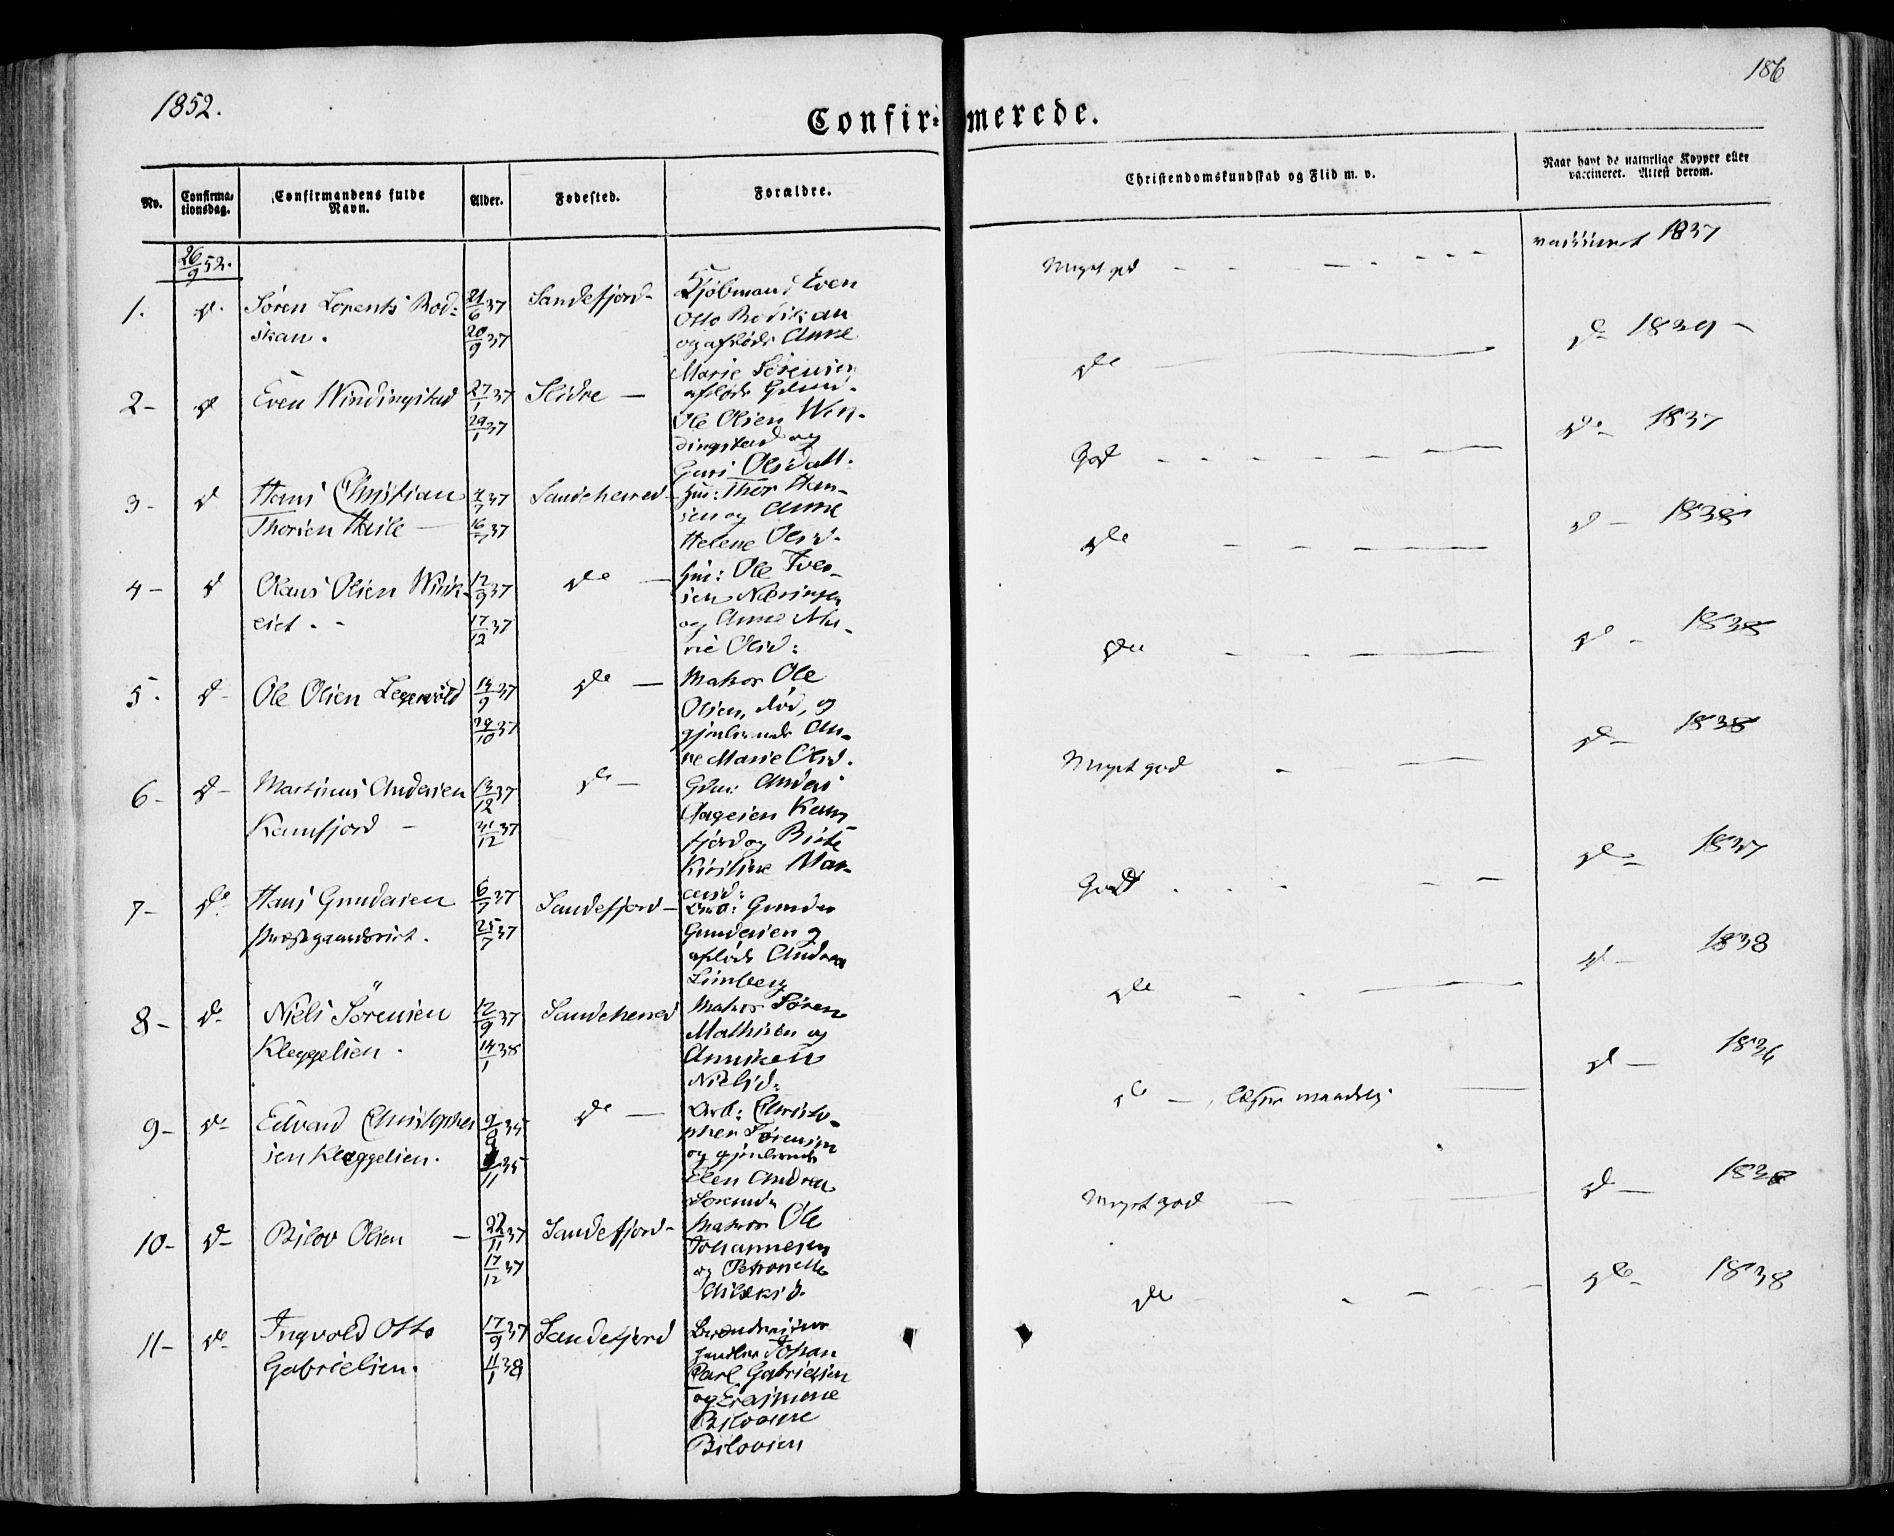 1852.
186
Confirmerede.
No.
Confirma-
tionsdag.
Confirmandens fulde
Navn.
Alder.
Fødested.
Forældre.
Christendomskundskab og Flid m. v.
Naar havt de naturlige Kopper eller
vaccineret. Attest derom.
26/9 52.
1. d. Søren Lorents Bod-
skan.
21/6 37
20/9 37
Sandefjord-
Kjøbmand Even
Otto Bodskan
og afdøde Anne
Marie Sørensen
Meget god
vaccineret 1837
2- d Even Windingstad
27/1 37
29/1 37
Slidre -
afdøde Gdmd.
Ole Olsen Win-
dingstad og
Guri Olsdatt.
do
do 1839 -
3- d Hans Christian
Thorsen Hesle -
4/7 37
16/7 37
Sandeherred-
Hus: Thor Han-
sen og Anne
Helene Olsd.
God
do 1837
4- d Olaus Olsen Wirk-
eiet.
12/9 37
17/12 37
do -
Hus: Ole Iver-
sen
og Anne Ma-
rie Olsd:
do
d - 1838
5. d- Ole Olsen
14/9 37
29/10 37
do -
Matros Ole
Olsen, død, og
gjenlevende An-
ne Marie Olsd.
do
d - 1838
6- d- Martinus Andersen
Kamfjord -
13/12 37
31/12 37
do -
Gdm: Anders
Aagesen Kam
fjord og Birte
Kirstine Mar-
ensd:
Meget god
d- 1838
7- do Hans Gundersen
Præstegaardseiet.
6/7 37
25/7 37
Sandefjord-
Arb: Gunder
Gundersen og
afdøde Andrea
Limberg
Godt
do 1837
8- d- Niels Sørensen
Kleggelien.
12/9 37
14/1 38
Sandeherred
Matros Søren
Mathisen og
Anniken
Nielsd:
do
d- 1838
9- do Edvard Christophe
sen Kleggelien.
9/9 35
/11 35
do -
Arb: Christo-
pher Sørensen
og gjenlevende
Elen Andrea
Sørensd
do -, læser maadelig
d- 1836
10- d- Bilov Olsen -
22/11 37
17/12 37
Sandefjord-
Matros Ole
Johannesen
og Petronelle
Meget god
d- 1838
11- do Ingvold Otto
Gabrielsen.
17/9 37
11/1 38
Sandefjord
handler Johan
Carl Gabrielsen
og Erasmine
Bilovine
Bilovsen
do
do- 1838